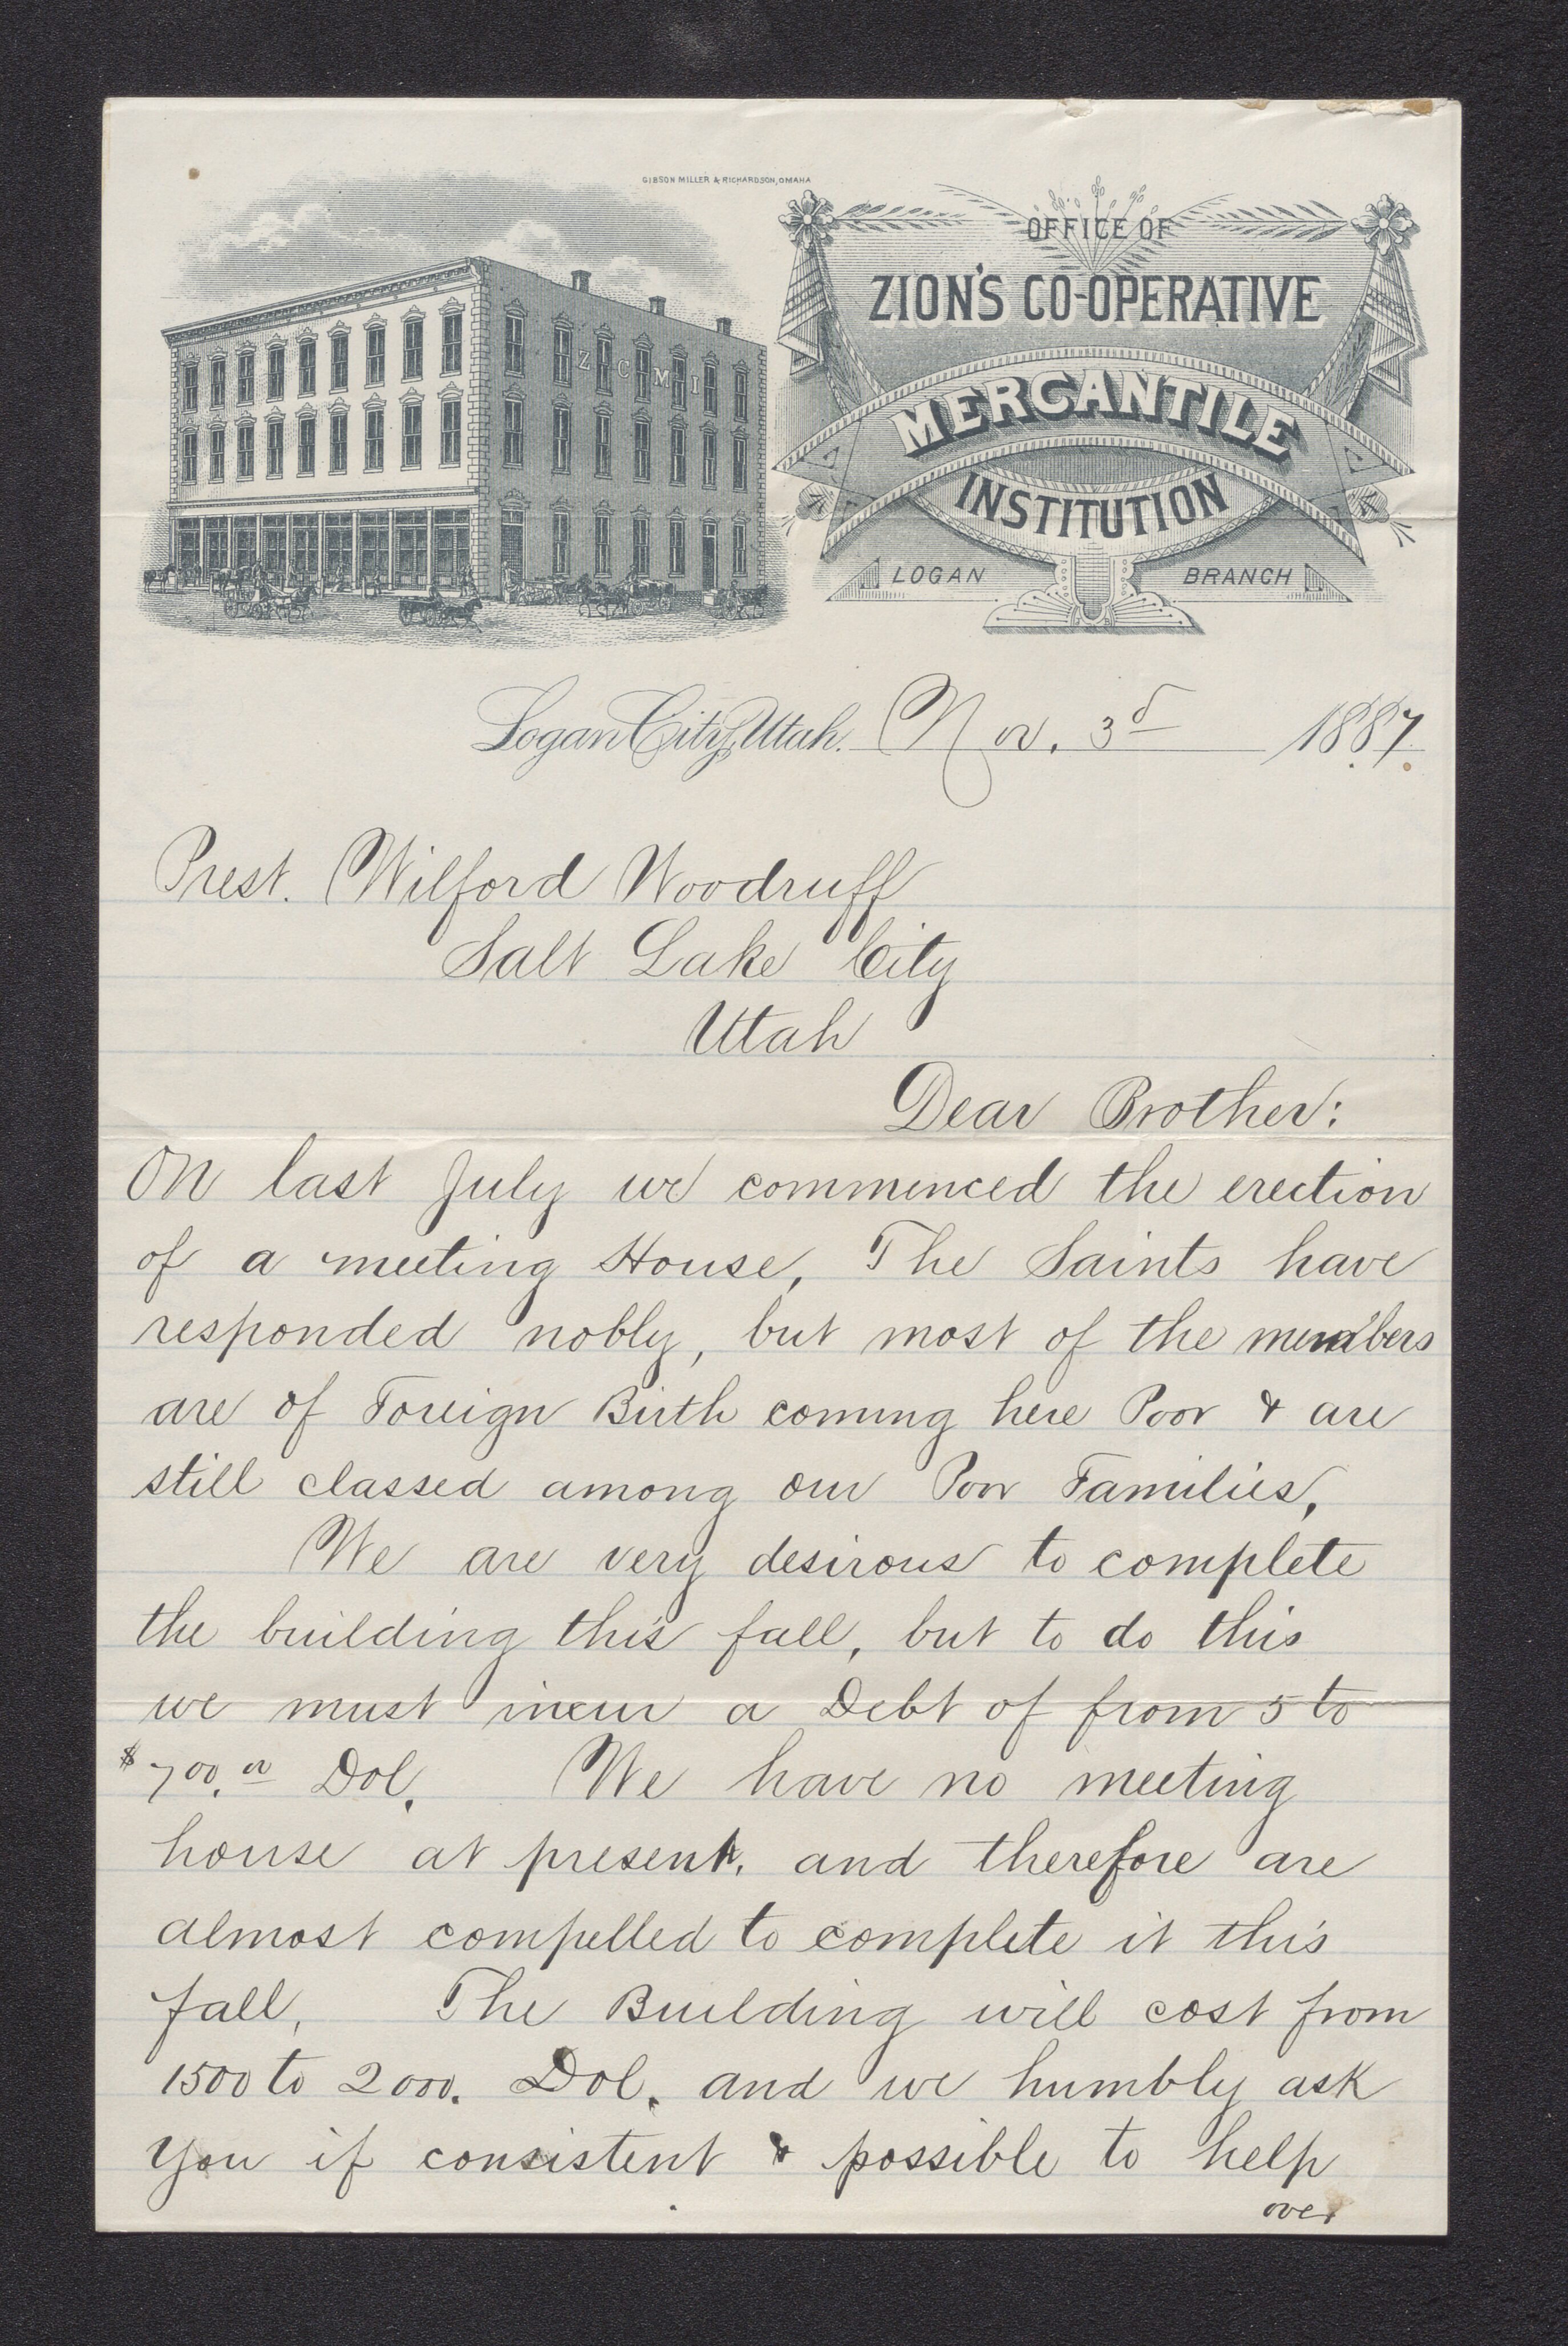 GIBSON MILLER & RICHARDSON, OMAHA
OFFICE OF
ZION'S CO-OPERATIVE
MERCANTILE
INSTITUTION
LOGAN BRANCH
Z C M I
Logan City, Utah. Nov. 3d 1887.
Prest. Wilford Woodruff
Salt Lake City
Utah
Dear Brother:
On last July we commenced the erection
of a meeting House, The Saints have
responded nobly, but most of the members
are of Foreign Birth coming here Poor & are
still classed among our Poor Families,
We are very desirous to complete
the building this fall, but to do this
we must incur a Debt of from 5 to
$700.00 Dol. We have no meeting
house at present, and therefore are
almost compelled to complete it this
fall, The Building will cost from
1500 to 2000. Dol. and we humbly ask
you if consistent & possible to help
over